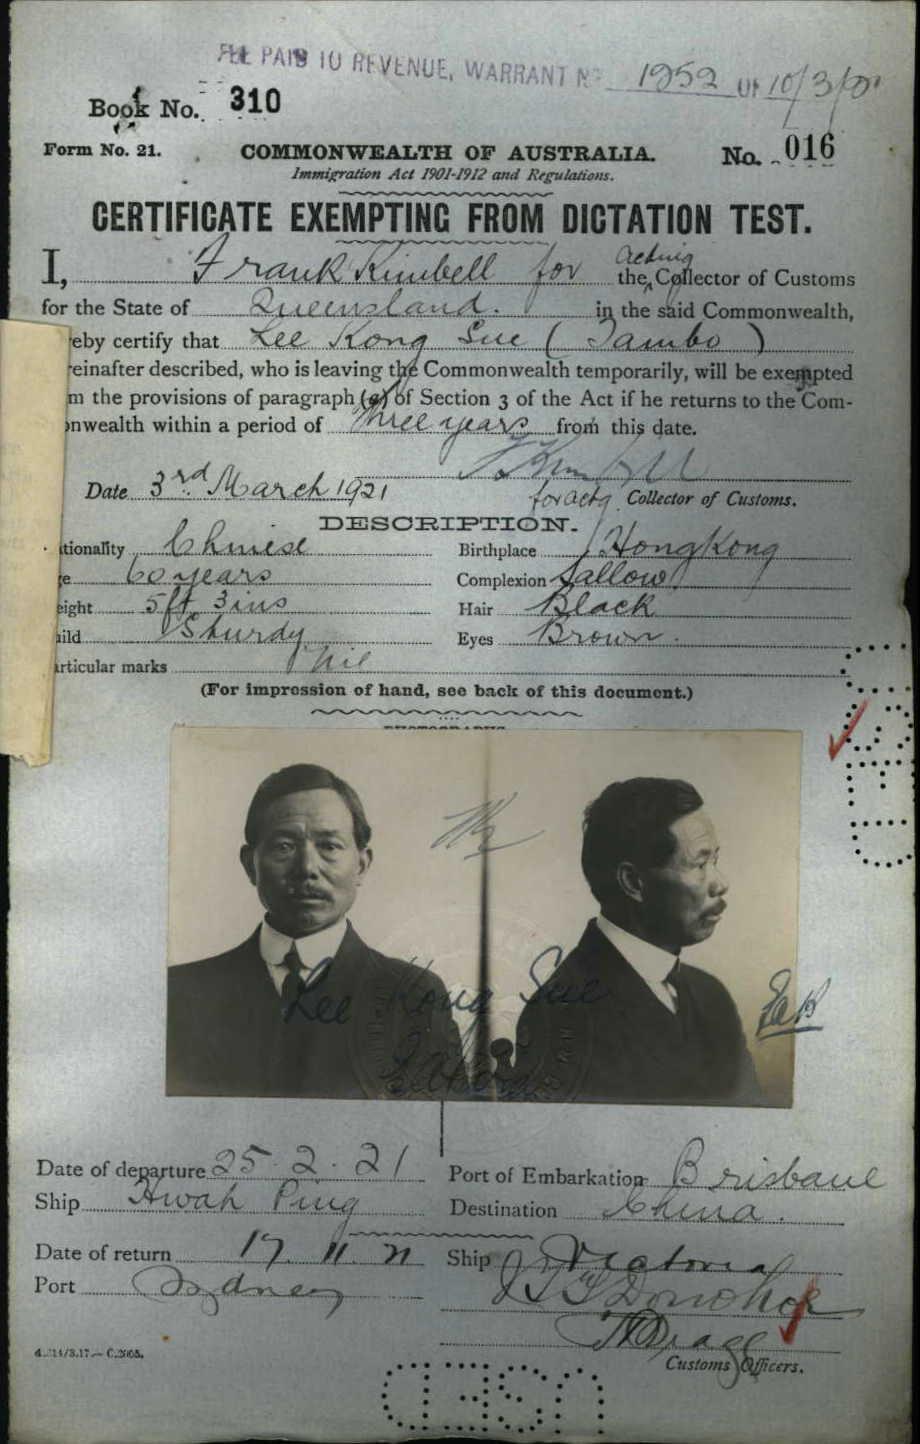 FEE PAID TO REVENUE, WARRANT No 1952 OF 10/3/21
Book No. 310
Form No. 21. COMMONWEALTH OF AUSTRALIA. No. 016
Immigration Act 1901-1912 and Regulations.
CERTIFICATE EXEMPTING FROM DICTATION TEST.
I, Frank Kimbell for the acting Collector of Customs
for the State of Queensland. in the said Commonwealth,
reby certify that Lee Kong Sue (Tambo)
reinafter described, who is leaving the Commonwealth temporarily, will be exempted
m the provisions of paragraph (a) of Section 3 of the Act if he returns to the Com-
onwealth within a period of Three years from this date.
F Kimbell
Date 3rd March 1921 for Actg. Collector of Customs.
DESCRIPTION.
tionality Chinese Birthplace Hongkong
ge 60 years Complexion Sallow
eight 5ft 3ins Hair Black
uild Sturdy Eyes Brown.
articular marks Nil
(For impression of hand, see back of this document.)
PHOTOGRAPHS
Lee Kong Sue
FaK
Date of departure 25.2.21 Port of Embarkation Brisbane
Ship Hwah Ping Destination China.
Date of return 17.11.21 Ship Victoria
Port Sydney
Customs Officers.